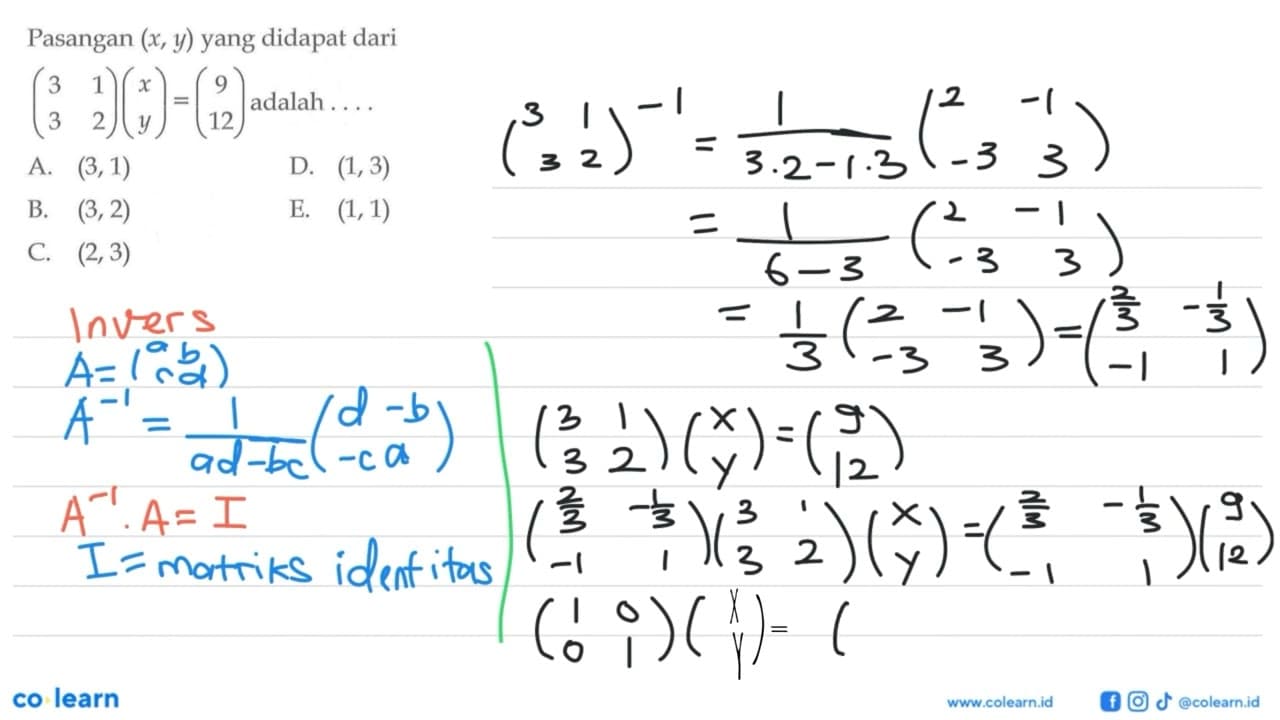 Pasangan (x, y) yang didapat dari
(3 1
3 2)(x
y) = (9
12) adalah . . . .
A. (3, 1)
D. (1, 3)
B. (3, 2)
E. (1, 1)
C. (2, 3)
Invers
A = (a b
c d)
A^-1 = 1/(ad-bc) (d -b
-c a)
A^-1 . A = I
I = matriks identitas
(3 1
3 2)^-1 = 1/(3.2-1.3) (2 -1
-3 3)
= 1/(6-3) (2 -1
-3 3)
= 1/3 (2 -1
-3 3) = (2/3 -1/3
-1 1)
(3 1
3 2)(x
y) = (9
12)
(2/3 -1/3
-1 1)(3 1
3 2)(x
y) = (2/3 -1/3
-1 1)(9
12)
(1 0
0 1)(x
y) = (
co learn
www.colearn.id
@colearn.id